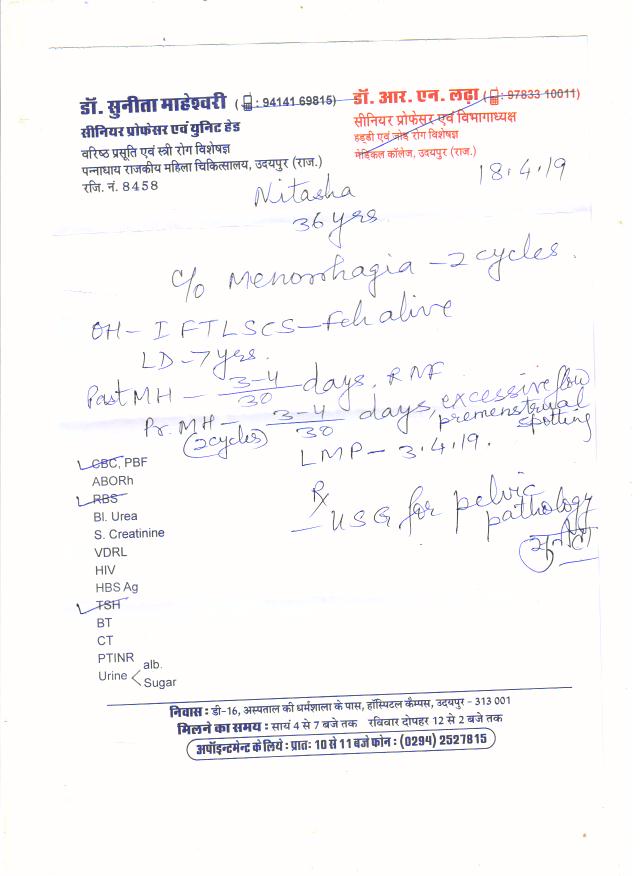 डॉ. सुनीता माहेश्वरी ( : 94141 69815)
सीनियर प्रोफेसर एवं युनिट हेड
वरिष्ठ प्रसूति एवं स्त्री रोग विशेषज्ञ
पन्नाधाय राजकीय महिला चिकित्सालय, उदयपुर (राज.)
रजि. नं. 8458
डॉ. आर. एन. लढ़ा ( : 97833 10011)
सीनियर प्रोफेसर एवं विभागाध्यक्ष
हड्डी एवं जोड़ रोग विशेषज्ञ
मेडिकल कॉलेज, उदयपुर (राज.)
18.4.19
Nitasha
36 yrs.
c/o Menorrhagia - 2 cycles.
OH - I FTLSCS - Fch alive
LD - 7 yrs.
Past MH - 3-4/30 days. RNF
Pr. MH - 3-4/30 days, excessive flow
(2 cycles) premenstrual
spotting
LMP - 3.4.19.
CBC, PBF
ABORh
RBS
Bl. Urea
S. Creatinine
VDRL
HIV
HBS Ag
TSH
BT
CT
PTINR
Urine < alb.
Sugar
Rx
- USG for pelvic
pathology
सुनीता
निवास : डी-16, अस्पताल की धर्मशाला के पास, हॉस्पिटल कैम्पस, उदयपुर - 313 001
मिलने का समय : सायं 4 से 7 बजे तक रविवार दोपहर 12 से 2 बजे तक
अपॉइन्टमेन्ट के लिये : प्रातः 10 से 11 बजे फोन : (0294) 2527815